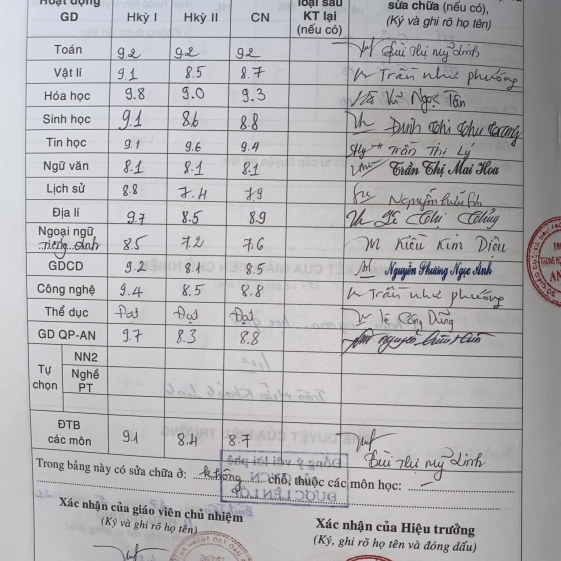 Hoạt động GD Hkỳ I Hkỳ II CN loại sau KT lại (nếu có) sửa chữa (nếu có), (Ký và ghi rõ họ tên)
Toán 9.2 9.2 9.2 Bùi Thị Mỹ Dinh
Vật lí 9.1 8.5 8.7 Trần như phương
Hóa học 9.8 9.0 9.3 Ngọc Tân
Sinh học 9.1 8.6 8.8 Đinh Thị Thu
Tin học 9.1 9.6 9.4 Trần Thị Lý
Ngữ văn 8.1 8.1 8.1 Trần Thị Mai Hoa
Lịch sử 8.8 7.4 7.9 Nguyễn
Địa lí 9.7 8.5 8.9 Lê Thị Thủy
Ngoại ngữ Tiếng Anh 8.5 7.2 7.6 Kiều Kim Diệu
GDCD 9.2 8.1 8.5 Nguyễn Phương Ngọc Anh
Công nghệ 9.4 8.5 8.8 Trần như phương
Thể dục Đạt Đạt Đạt Lê Công Dũng
GD QP-AN 9.7 8.3 8.8 nguyễn
Tự chọn NN2
Nghề PT
ĐTB các môn 9.1 8.4 8.7 Bùi Thị Mỹ Dinh
Trong bảng này có sửa chữa ở: không chỗ, thuộc các môn học:
Xác nhận của giáo viên chủ nhiệm Xác nhận của Hiệu trưởng
(Ký và ghi rõ họ tên) (Ký, ghi rõ họ tên và đóng dấu)